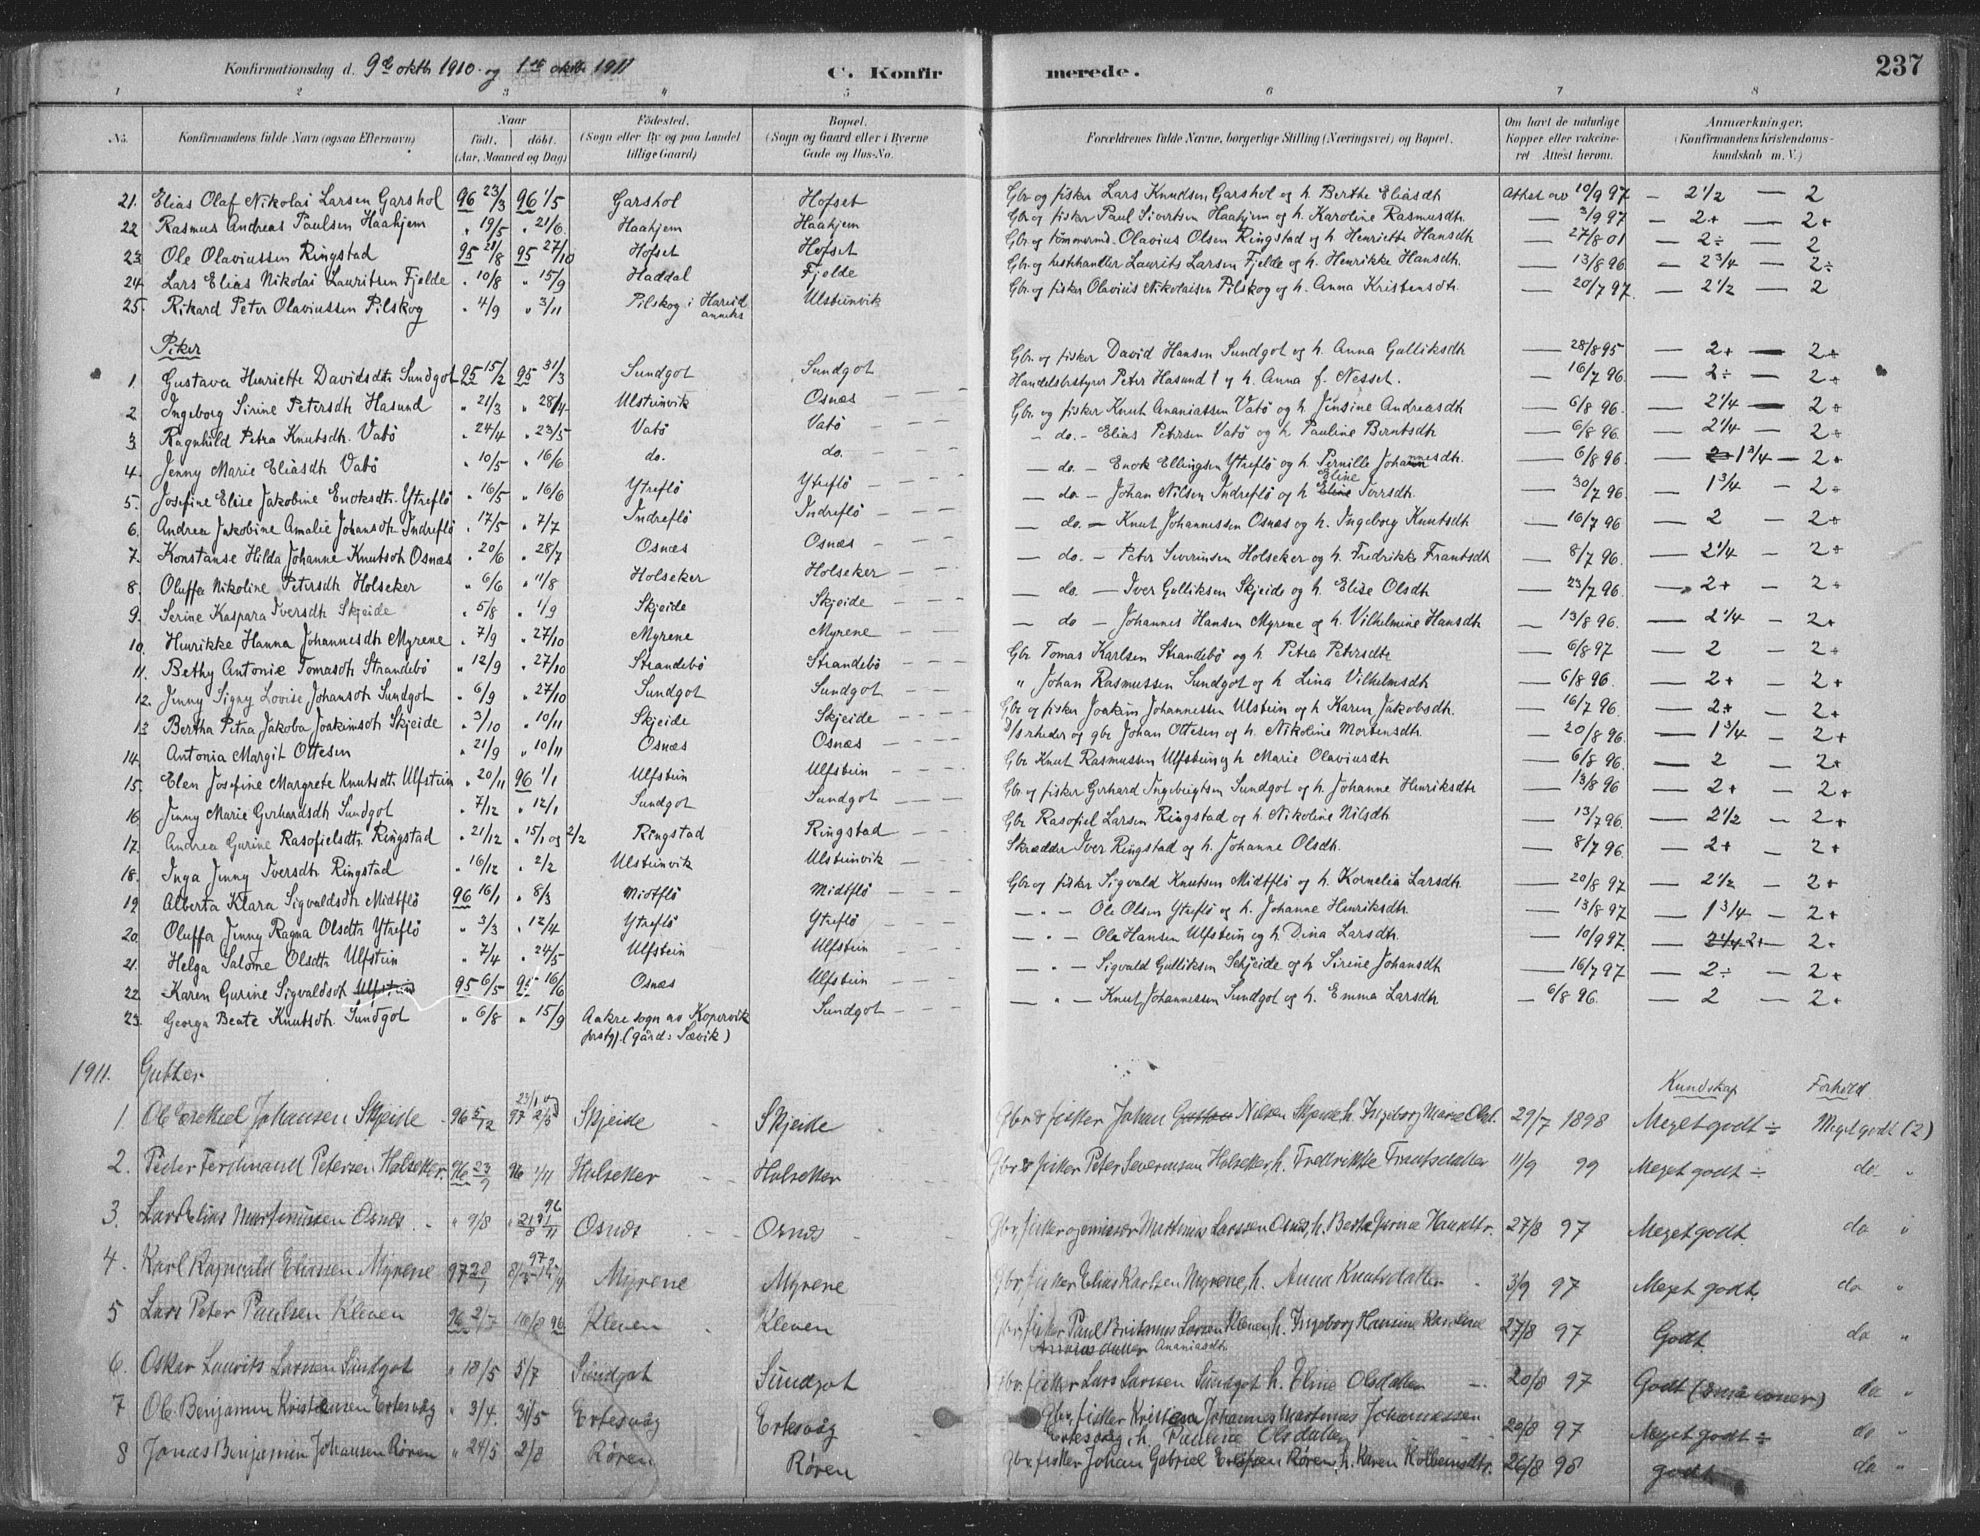 Konfirmationsdag d. 9de oktbr 1910 og 1ste oktbr 1911 C. Konfirmerede. 237
1 2 3 4 5 6 7 8
No. Konfirmandens fulde Navn (ogsaa Efternavn) Naar født. døbt. (Aar, Maaned og Dag) Fødested. (Sogn eller By og paa Landet tillige Gaard) Bopæl. (Sogn og Gaard eller i Byerne Gade og Hus-No. Forældrenes fulde Navne, borgerlige Stilling (Næringsvei) og Bopæl. Om havt de naturlige Kopper eller vakcineret Attest herom. Anmærkninger. (Konfirmandens Kristendomskundskab m. V.)
21. Elias Olaf Nikolai Larsen Garshol 96 23/3 96 1/5 Garshol Hofset Gbr og fisker Lars Knudsen Garshol og h. Berthe Eliasdtr Attest av 10/9 97 – 2 1/2 — 2
22 Rasmus Andreas Paulsen Haahjem " 19/5 " 21/6 Haahjem Haahjem Gbr og fisker Paul Sivertsen Haahjem og h. Karoline Rasmusdtr. — 3/9 97 — 2+ — 2+
23 Ole Olaviussen Ringstad 95 28/8 95 27/10 Hofset Hofset Gbr og tømmermd. Olavius Olsen Ringstad og h. Henriette Hansdtr — 27/8 01 — 2÷ — 2
24 Lars Elias Nikolai Lauritsen Fjelde " 10/8 " 15/9 Haddal Fjelde Gbr og hestehandler Laurits Larsen Fjelde og h. Henrikke Hansdtr. — 13/8 96. — 2 3/4 — 2÷
25. Rikard Peter Olaviussen Pilskog " 4/9 " 3/11 Pilskog i Hareid anneks Ulsteinvik Gbr og fisker Olavius Nikolaisen Pilskog og h. Anna Kristensdtr. — 20/7 97. — 2 1/2 — 2
Piker
1. Gustava Henriette Davidsdtr Sundgot 95 15/2 95 31/3 Sundgot Sundgot Gbr og fisker David Hansen Sundgot og h. Anna Gulliksdtr — 28/8 95 — 2+ — 2+
2 Ingeborg Sirine Petersdtr Hasund " 21/3 " 28/4 Ulsteinvik Osnæs Handelsbestyrer Peter Hasund † og h. Anna f. Nesset. — 16/7 96. — 2÷ — 2+
3 Ragnhild Petra Knutsdtr. Vatø " 24/4 " 23/5 Vatø Vatø Gbr og fisker Knut Ananiassen Vatø og h. Jensine Andreasdtr — 6/8 96. — 2 1/4 — 2+
4. Jenny Marie Eliasdtr Vatø " 10/5 " 16/6 do. do. – do. – Elias Petersen Vatø og h. Pauline Berntsdtr — 6/8 96. — 2 1/4 — 2+
5. Josefine Elise Jakobine Enoksdtr. Ytreflø " 16/5 " 16/6 Ytreflø Ytreflø — do. – Enok Ellingsen Ytreflø og h. Pernille Johannesdtr. — 6/8 96. — 2 1 3/4 — 2+
6. Andrea Jakobine Amalie Johansdtr Indreflø " 17/5 " 7/7 Indreflø Indreflø — do – Johan Nilsen Indreflø og h. Eline Iversdtr. — 30/7 96. — 1 3/4 — 2+
7. Konstanse Hilda Johanne Knutsdtr Osnæs " 20/6 " 28/7 Osnæs Osnæs — do. – Knut Johannessen Osnæs og h. Ingeborg Knutsdtr — 16/7 96 — 2 — 2+
8. Oluffa Nikoline Petersdtr Holseker " 6/6 " 11/8 Holseker Holseker — do. – Peter Severinsen Holseker og h. Fredrikke Frantsdtr — 8/7 96. — 2 1/4 — 2+
9. Serine Kaspara Iversdtr Skjeide " 5/8 " 1/9 Skjeide Skjeide — do. – Iver Gulliksen Skjeide og h. Elise Olsdtr — 23/7 96. — 2+ — 2+
10. Henrikke Hanna Johannesdtr Myrene " 7/9 " 27/10 Myrene Myrene — do – Johannes Hansen Myrene og h. Vilhelmine Hansdtr — 13/8 96. — 2 1/4 — 2+
11. Bethy Antonie Tomasdtr Strandebø " 12/9 " 27/10 Strandebø Strandebø Gbr Tomas Karlsen Strandebø og h. Petra Petersdtr — 6/8 97 — 2 — 2+
12. Jenny Signy Lovise Johansdtr Sundgot " 6/9 " 27/10 Sundgot Sundgot " Johan Rasmussen Sundgot og h. Lina Vilhelmsdtr — 6/8 96. — 2+ — 2+
13 Bertha Petra Jakoba Joakimsdtr Skjeide " 3/10 " 10/11 Skjeide Skjeide Gbr og fisker Joakim Johannessen Ulstein og h. Karen Jakobsdtr. — 16/7 96 — 2+ — 2+
14. Antonia Margit Ottesen " 21/9 " 10/11 Osnæs Osnæs rheder og gbr Johan Ottesen og h. Nikoline Mortensdtr — 20/8 96. — 1 3/4 — 2+
15. Elen Josefine Margrete Knutsdtr Ulfstein " 20/11 96 1/1 Ulfstein Ulfstein Gbr Knut Rasmussen Ulfstein og h. Marie Olaviusdtr — 6/8 96. — 2 — 2+
16 Jenny Marie Gerhardsdtr Sundgot " 7/12 " 12/1 Sundgot Sundgot Gbr og fisker Gerhard Ingebrigtsen Sundgot og h. Johanne Henriksdtr — 13/8 96 — 2+ — 2+
17. Andrea Gurine Rasofielsdtr. Ringstad " 21/12 " 15/1 og 2/2 Ringstad Ringstad Gbr Rasofiel Larsen Ringstad og h. Nikoline Nilsdtr — 13/7 96. — 2 1/2 — 2+
18. Inga Jenny Iversdtr Ringstad " 16/12 " 2/2 Ulsteinvik Ulsteinvik Skrædder Iver Ringstad og h. Johanne Olsdtr. — 8/7 96. — 2+ — 2+
19 Alberta Klara Sigvaldsdtr Midtflø 96 16/1 " 8/3 Midtflø Midtflø Gbr og fisker Sigvald Knutsen Midtflø og h. Kornelia Larsdtr — 20/8 97 — 2 1/2 — 2+
20. Oluffa Jenny Ragna Olsdtr Ytreflø " 3/3 " 12/4 Ytreflø Ytreflø — " — Ole Olsen Ytreflø og h. Johanne Henriksdtr. — 13/8 97 — 1 3/4 — 2+
21. Helga Salome Olsdtr Ulfstein " 7/4 " 24/5 Ulfstein Ulfstein — " — Ole Hansen Ulfstein og h. Dina Larsdtr. — 10/9 97 — 2 1/4 2+ — 2+
22. Karen Gurine Sigvaldsdtr Ulfstein 95 6/5 95 16/6 Osnæs Ulfstein — " — Sigvald Gulliksen Skjeide og h. Sirine Johansdtr — 16/7 97 — 2÷ — 2+
23. Georga Beate Knutsdtr. Sundgot " 6/8 " 15/9 Aakre sogn av Kopervik prstgj. (gård: Sævik) Sundgot — " — Knut Johannessen Sundgot og h. Emma Larsdtr — 6/8 96. — 2 — 2+
1911. Gutter. Kundskap Forhold.
1 Ole Esekiel Johansen Skjeide 96 5/12 23/1 og 97 2/5 Skjeide Skjeide Gbr & fisker Johan Gustav Nilsen Skjeide h. Ingeborg Marie Olsd. 29/7 1898 Meget godt ÷ Meget godt (2)
2. Peder Ferdinand Petersen Holseker. 96 23/9 96 1/11 Holseker Holseker Gbr & fisker Peter Severinsen Holseker, h. Fredrikke Frantsdatter 11/9 99 Meget godt ÷ do "
3. Lars Elias Martinussen Osnæs " 9/8 96 Osnæs Osnæs Gbr, fisker og emissær Martinus Larssen Osnæs, h. Berte Gurine Hansdtr. 27/8 97 Meget godt. do "
4. Karl Ragnvald Eliassen Myrene 97 28/1 97 Myrene Myrene Gbr, fisker Elias Karlsen Myrene, h. Anna Knutsdatter 3/9 97 Meget godt. do "
5 Lars Peter Paulsen Kleven 96 2/7 16/8 96 Kleven Kleven Gbr, fisker Paul Britanus Larsen Kleven, h. Ingeborg Hansine Karoline Ananiasdtr. 27/8 97 Godt. do "
6. Oskar Laurits Larssen Sundgot " 18/5 5/7 Sundgot Sundgot Gbr, fisker Lars Larssen Sundgot h. Eline Olsdatter 20/8 97 Godt do "
7 Ole Benjamin Kristensen Ertesvåg " 3/4. 31/5 Ertesvåg Ertesvåg Gbr, fisker Kristen Johannes Martinus Johannessen Ertesvåg, h. Pauline Olsdatter 20/8 97 Meget godt ÷ do "
8 Jonas Benjamin Johansen Røren " 24/5 2/8 Røren Røren Gbr, fisker Johan Gabriel Røren, h. Karen Kolbeinsdtr. 26/8 98 godt. do "